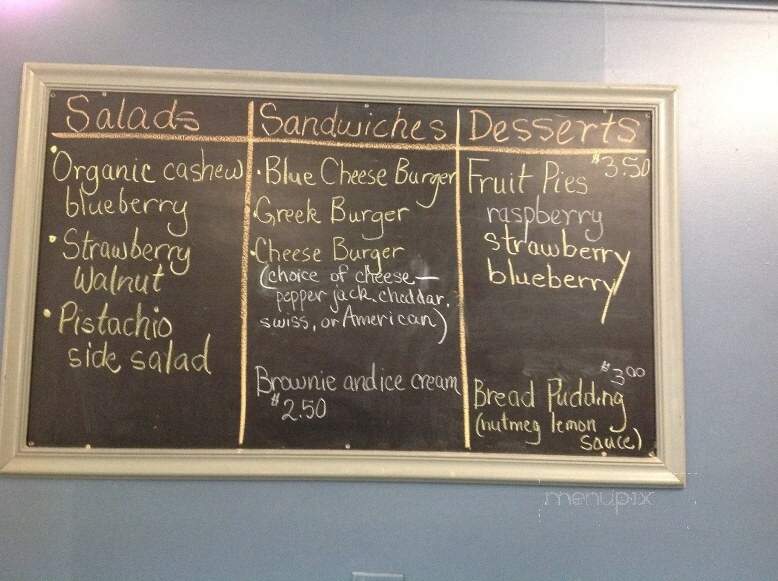 Salads
Organic cashew
blueberry
• Strawberry
Walnut
• Pistachio
side salad
Sandwiches
• Blue Cheese Burger
Greek Burger
Cheese Burger
(choice of cheese —
pepper jack, cheddar,
swiss, or American)
Brownie and ice cream
$2.50
Desserts
$3.50
Fruit Pies
raspberry
strawberry
blueberry
$3.00
Bread Pudding
(nutmeg lemon
sauce)
menupix